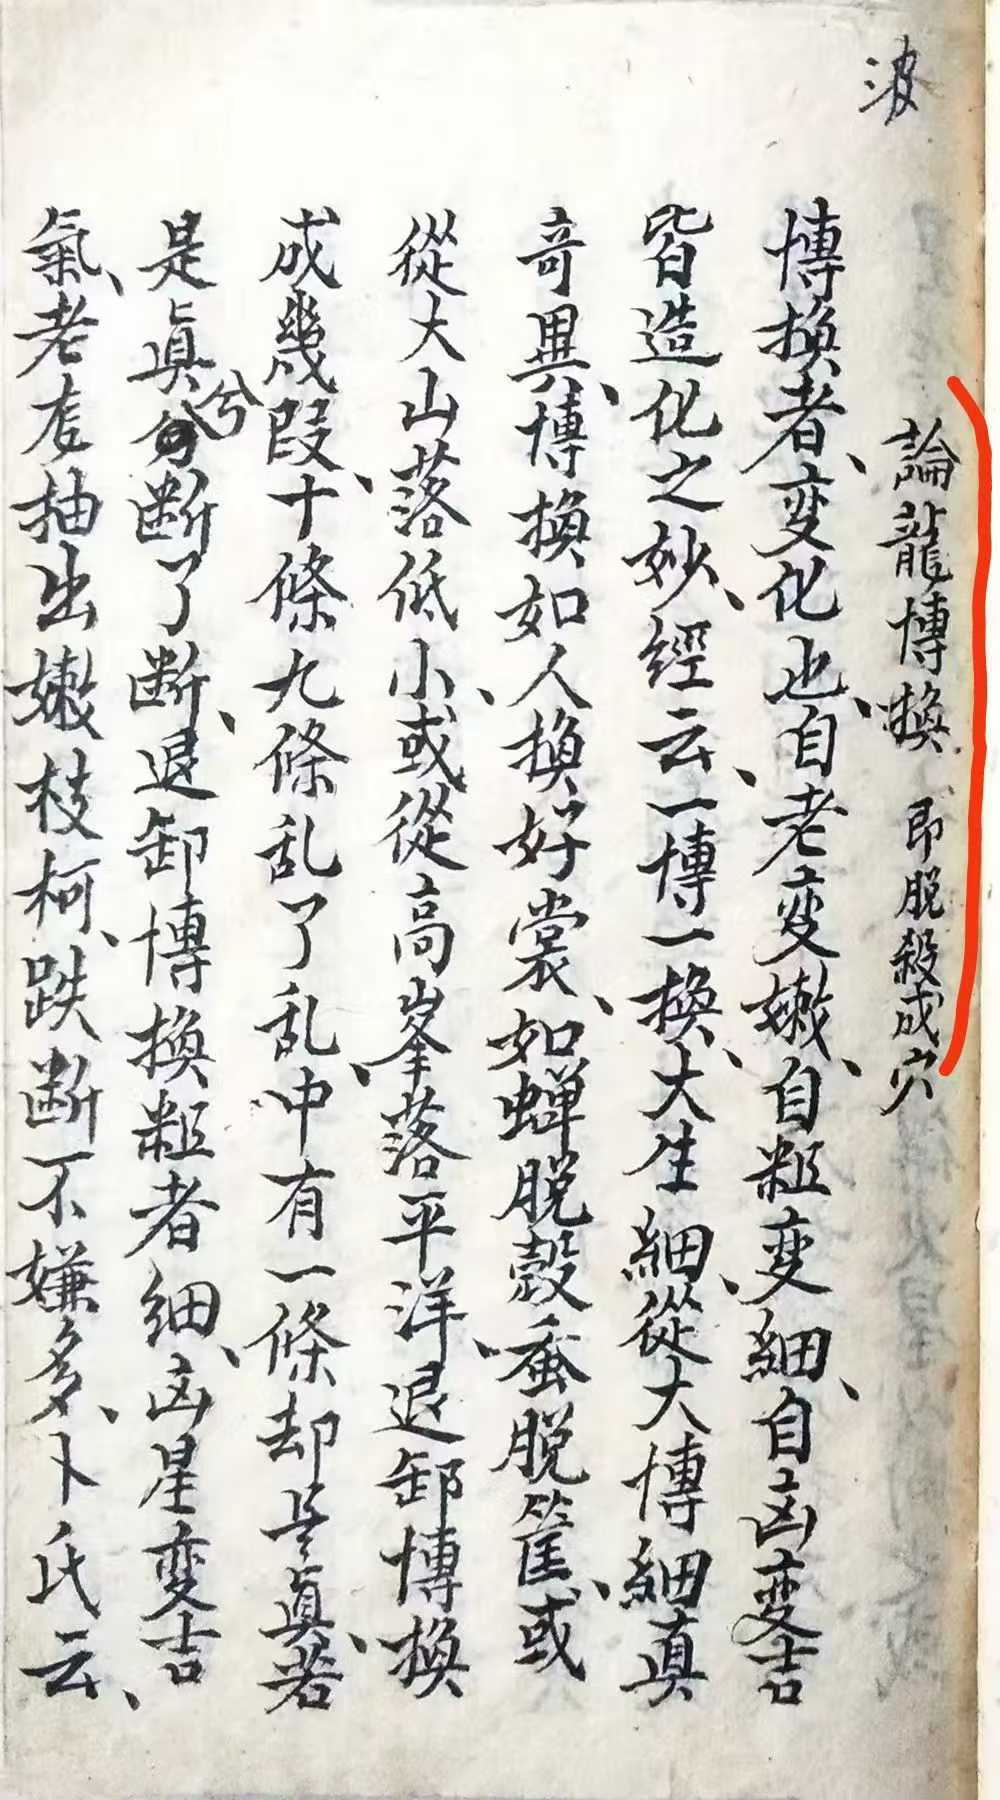 波
論龍博換 即脱殺成穴
博換者、变化也、自老变嫩、自粗变細、自凶变吉
皆造化之妙、經云、一博一換、大生細、從大博細真
奇異、博換如人換好裳、如蟬脱殼蚕脱筐、或
從大山落低小、或從高峯落平洋、退卸博換
成幾段、十條九條乱了乱、中有一條却是真、若
是真兮断了断、退卸博換粗者細、凶星变吉
氣、老幹抽出嫩枝柯、跌断不嫌多、卜氏云、